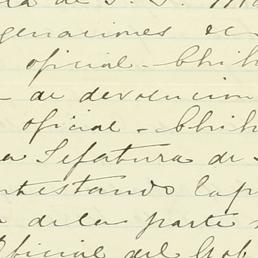 de S. S.
genaciones
oficial - Chih
- de devolucion
oficial - Chih
a Jefatura de
ntestando la p
de la parte
Oficial del Gob